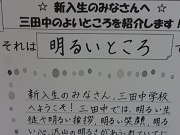 ☆ 新入生のみなさんへ ☆
三田中のよいところを紹介します!
それは 明るいところ です
新入生のみなさん、三田中学校
へようこそ!三田中では、明るい生
徒や明るい挨拶、明るい笑顔、明る
い